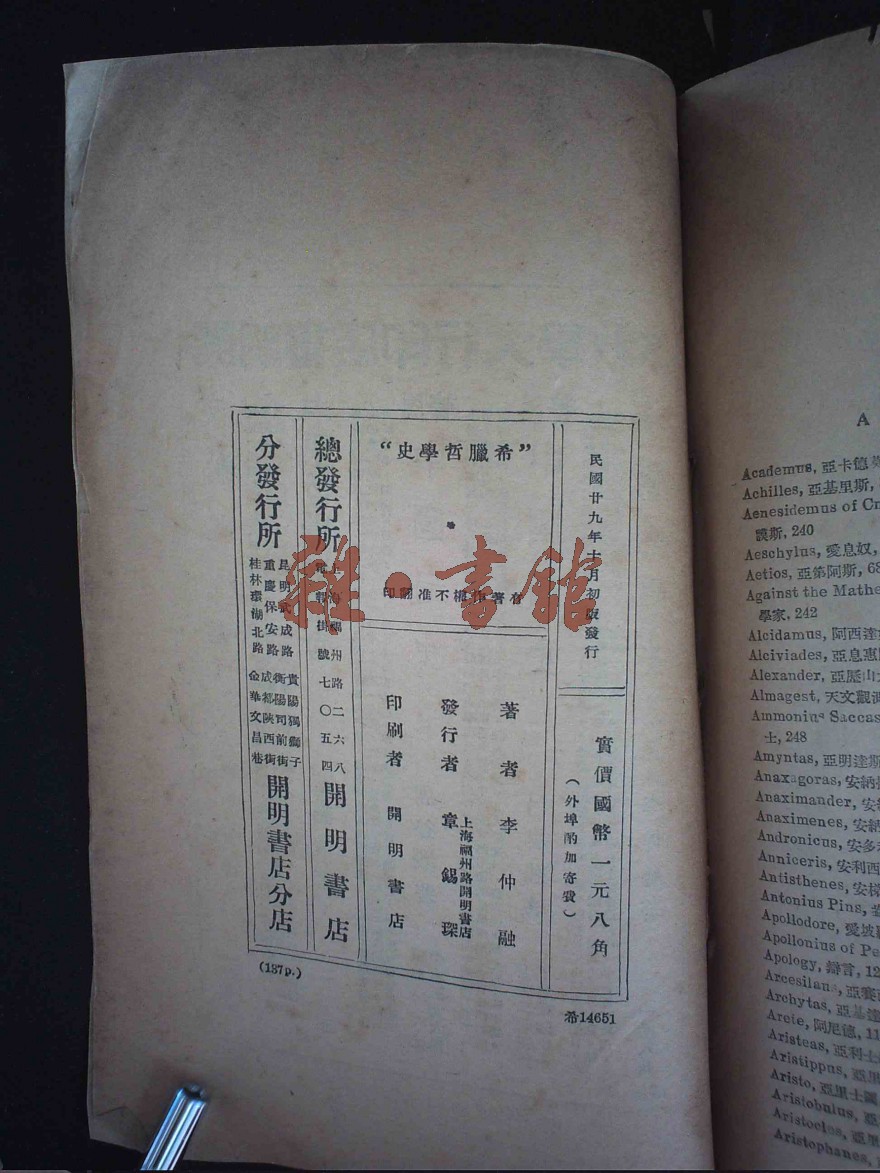 民國廿九年十月初版發行
實價國幣一元八角
(外埠酌加寄費)
“希臘哲學史”
有著作權不准翻印
著者 李仲融
發行者 章錫琛
上海福州路開明書店
印刷者 開明書店
總發行所
上海福州路二六八
電報掛號七〇五四
開明書店
分發行所
昆明武成路 貴陽獨獅子
重慶保安路 衡陽司前街
成都陝西街
桂林環湖北路 金華文昌巷
開明書店分店
(187P.)
希14651
雜·書館
A
Academus, 亞卡德
Achilles, 亞基里斯,
Aenesidemus of Cr
謨斯, 240
Aeschylus, 愛息奴,
Aetios, 亞第阿斯, 68
Against the Mathe
學家, 242
Alcidamus, 阿西達
Alciviades, 亞息惠
Alexander, 亞歷山
Almagest, 天文觀
Ammonius Saccas
士, 248
Amyntas, 亞明達斯
Anaxagoras, 安納
Anaximander, 安
Anaximenes, 安納
Andronicus, 安多
Anniceris, 安利西
Antisthenes, 安梯
Antonius Pins,
Apollodore, 愛坡
Apollonius of Pe
Apology, 辯言, 12
Arcesilaus, 亞賽
Archytas, 亞基達
Arete, 阿尼德, 11
Aristeas, 亞利士
Aristippus, 亞里
Aristo, 亞里士圖
Aristobulus, 亞
Aristocles, 亞里
Aristophanes,